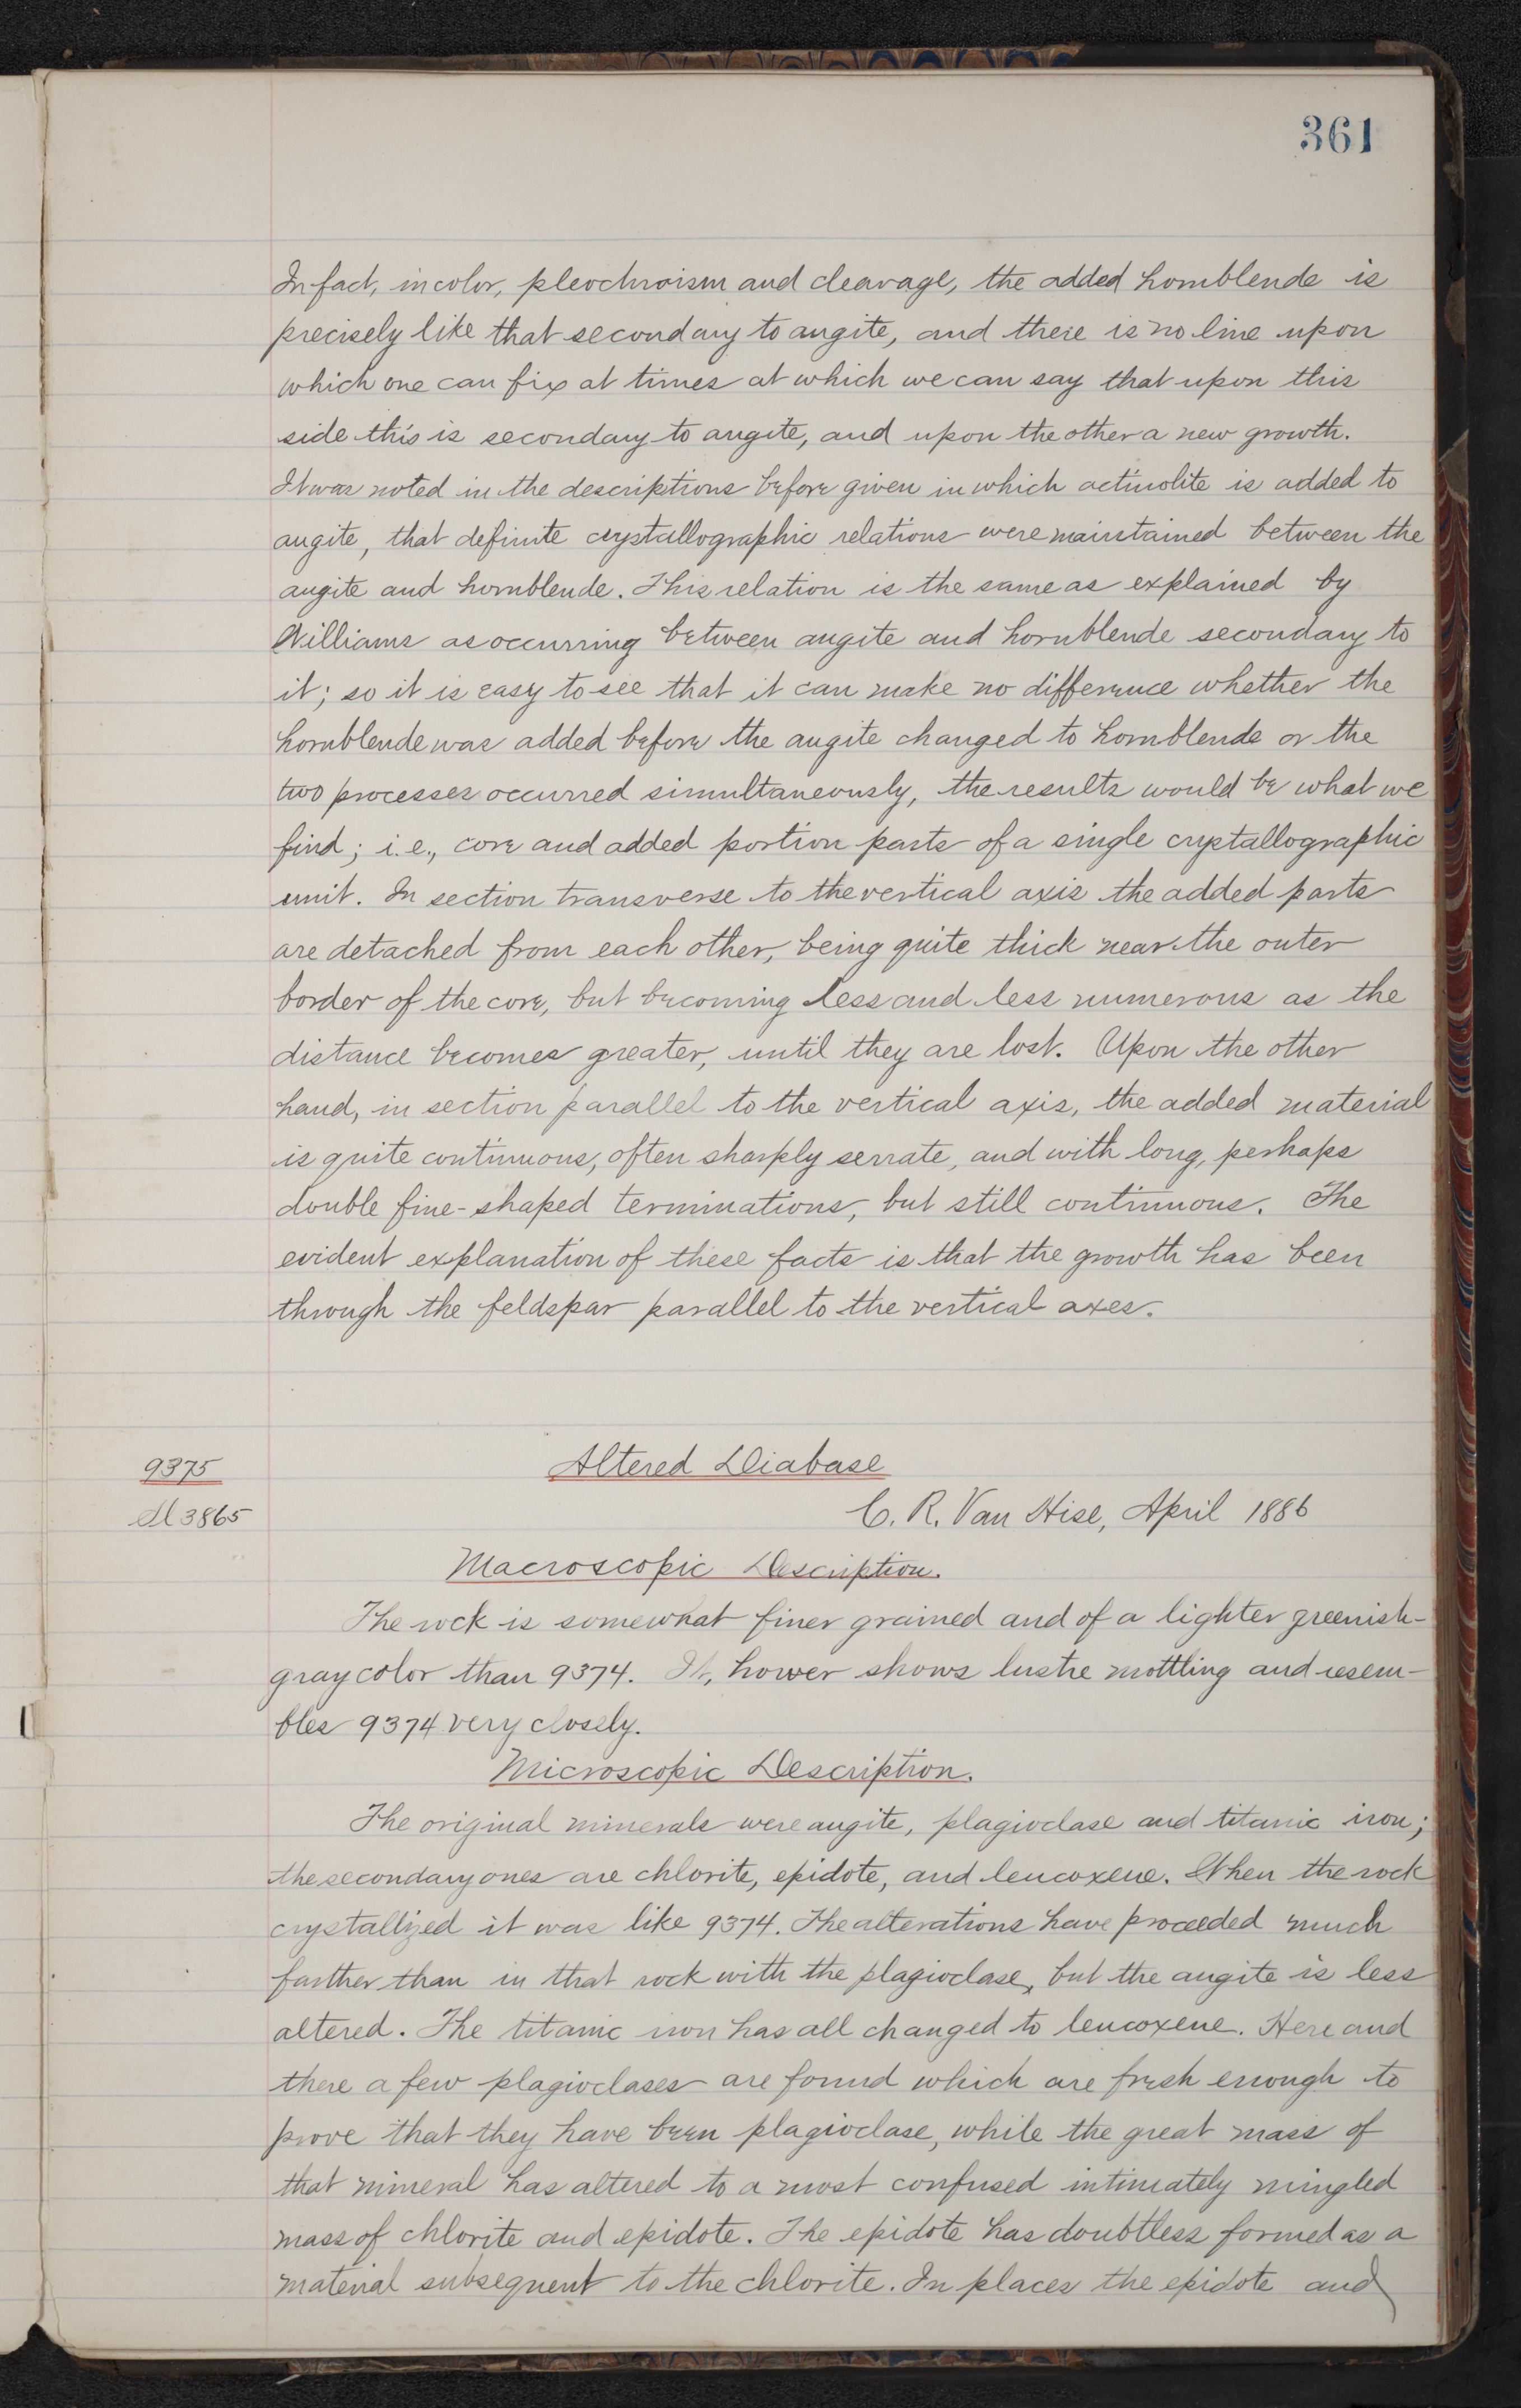 361
In fact, in color, pleochroism and cleavage, the added hornblende is
precisely like that secondary to augite, and there is no line upon
which one can fix at times at which we can say that upon this
side this is secondary to augite, and upon the other a new growth.
It was noted in the descriptions before given in which actinolite is added to
augite, that definite crystallographic relations were maintained between the
augite and hornblende. This relation is the same as explained by
Williams as occurring between augite and hornblende secondary to
it; so it is easy to see that it can make no difference whether the
hornblende was added before the augite changed to hornblende or the
two processes occurred simultaneously, the results would be what we
find; i.e., core and added portion parts of a single crystallographic
unit. In section transverse to the vertical axis the added parts
are detached from each other, being quite thick near the outer
border of the core, but becoming less and less numerous as the
distance becomes greater, until they are lost. Upon the other
hand, in section parallel to the vertical axis, the added material
is quite continuous, often sharply serrate, and with long, perhaps
double fine-shaped terminations, but still continuous. The
evident explanation of these facts is that the growth has been
through the feldspar parallel to the vertical axes.
9375 Altered Diabase
Sl 3865 C. R. Van Hise, April 1886
Macroscopic Description.
The rock is somewhat finer grained and of a lighter greenish-
gray color than 9374. It, hower shows lustre mottling and resem-
bles 9374 very closely.
Microscopic Description.
The original minerals were augite, plagioclase and titanic iron;
the secondary ones are chlorite, epidote, and leucoxene. When the rock
crystallized it was like 9374. The alterations have proceeded much
farther than in that rock with the plagioclase, but the augite is less
altered. The titanic iron has all changed to leucoxene. Here and
there a few plagioclases are found which are fresh enough to
prove that they have been plagioclase, while the great mass of
that mineral has altered to a most confused intimately mingled
mass of chlorite and epidote. The epidote has doubtless formed as a
material subsequent to the chlorite. In places the epidote and